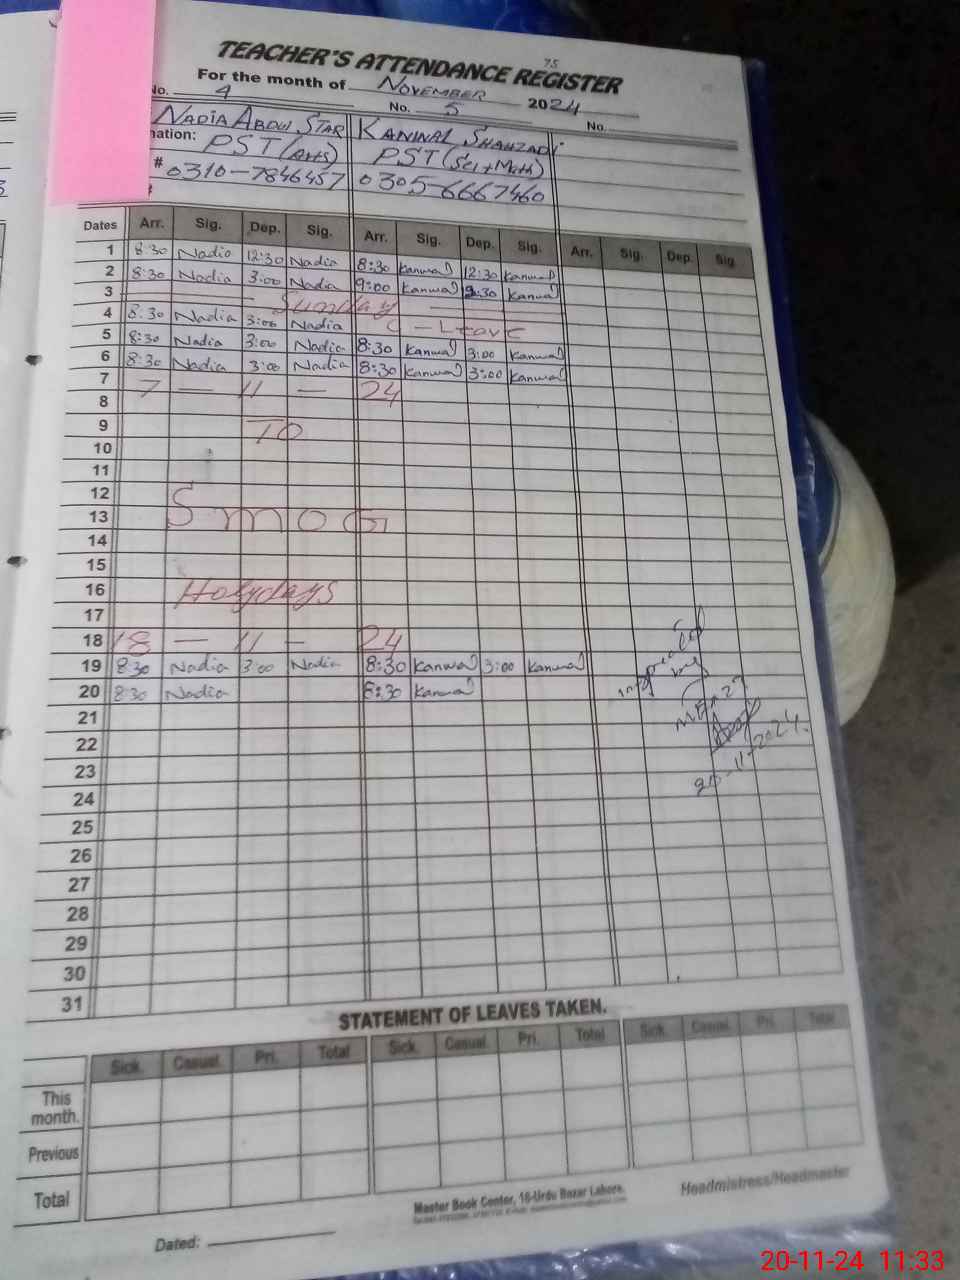 TEACHER'S ATTENDANCE REGISTER
75
For the month of November 2024
No. 4 No. 5 No.
Nadia Abdul Star Kanwal Shahzadi
nation: PST (Arts) PST (Sci + Math)
# 0310-7846457 0305-6667460
Dates Arr. Sig. Dep. Sig. Arr. Sig. Dep. Sig. Arr. Sig. Dep. Sig.
1 8:30 Nadia 12:30 Nadia 8:30 Kanwal 12:30 Kanwal
2 8:30 Nadia 3:00 Nadia 9:00 Kanwal 2:30 Kanwal
3 Sunday
4 8:30 Nadia 3:00 Nadia C - Leave
5 8:30 Nadia 3:00 Nadia 8:30 Kanwal 3:00 Kanwal
6 8:30 Nadia 3:00 Nadia 8:30 Kanwal 3:00 Kanwal
7 7 — 11 — 24
8
9 TO
10
11
12
13 SMOG
14
15
16 Holydays
17
18 18 — 11 — 24
19 8:30 Nadia 3:00 Nadia 8:30 Kanwal 3:00 Kanwal
20 8:30 Nadia 8:30 Kanwal
21
22
23
24
25
26
27
28
29
30
31
inspected
by
MEA 27
20-11-2024
STATEMENT OF LEAVES TAKEN.
Sick. Casual. Pri. Total Sick. Casual. Pri. Total Sick. Casual. Pri. Total
This month.
Previous
Total
Master Book Center, 16-Urdu Bazar Lahore.
Headmistress/Headmaster
Dated:
20-11-24 11:33